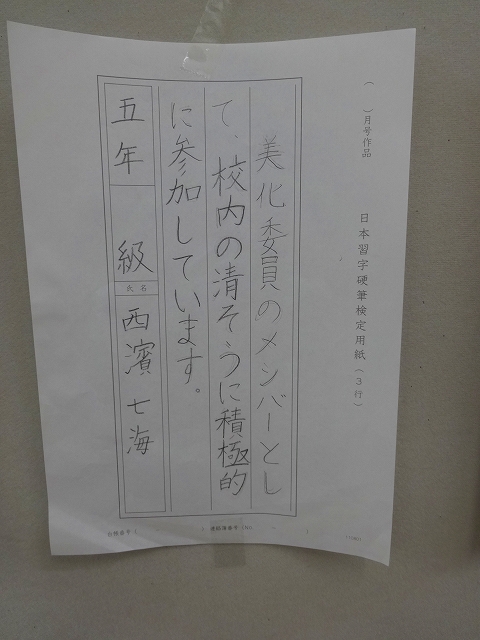 ( )月号作品
日本習字硬筆検定用紙(3行)
美化委員のメンバーとし
て、校内の清そうに積極的
に参加しています。
五年 級 氏名 西濱七海